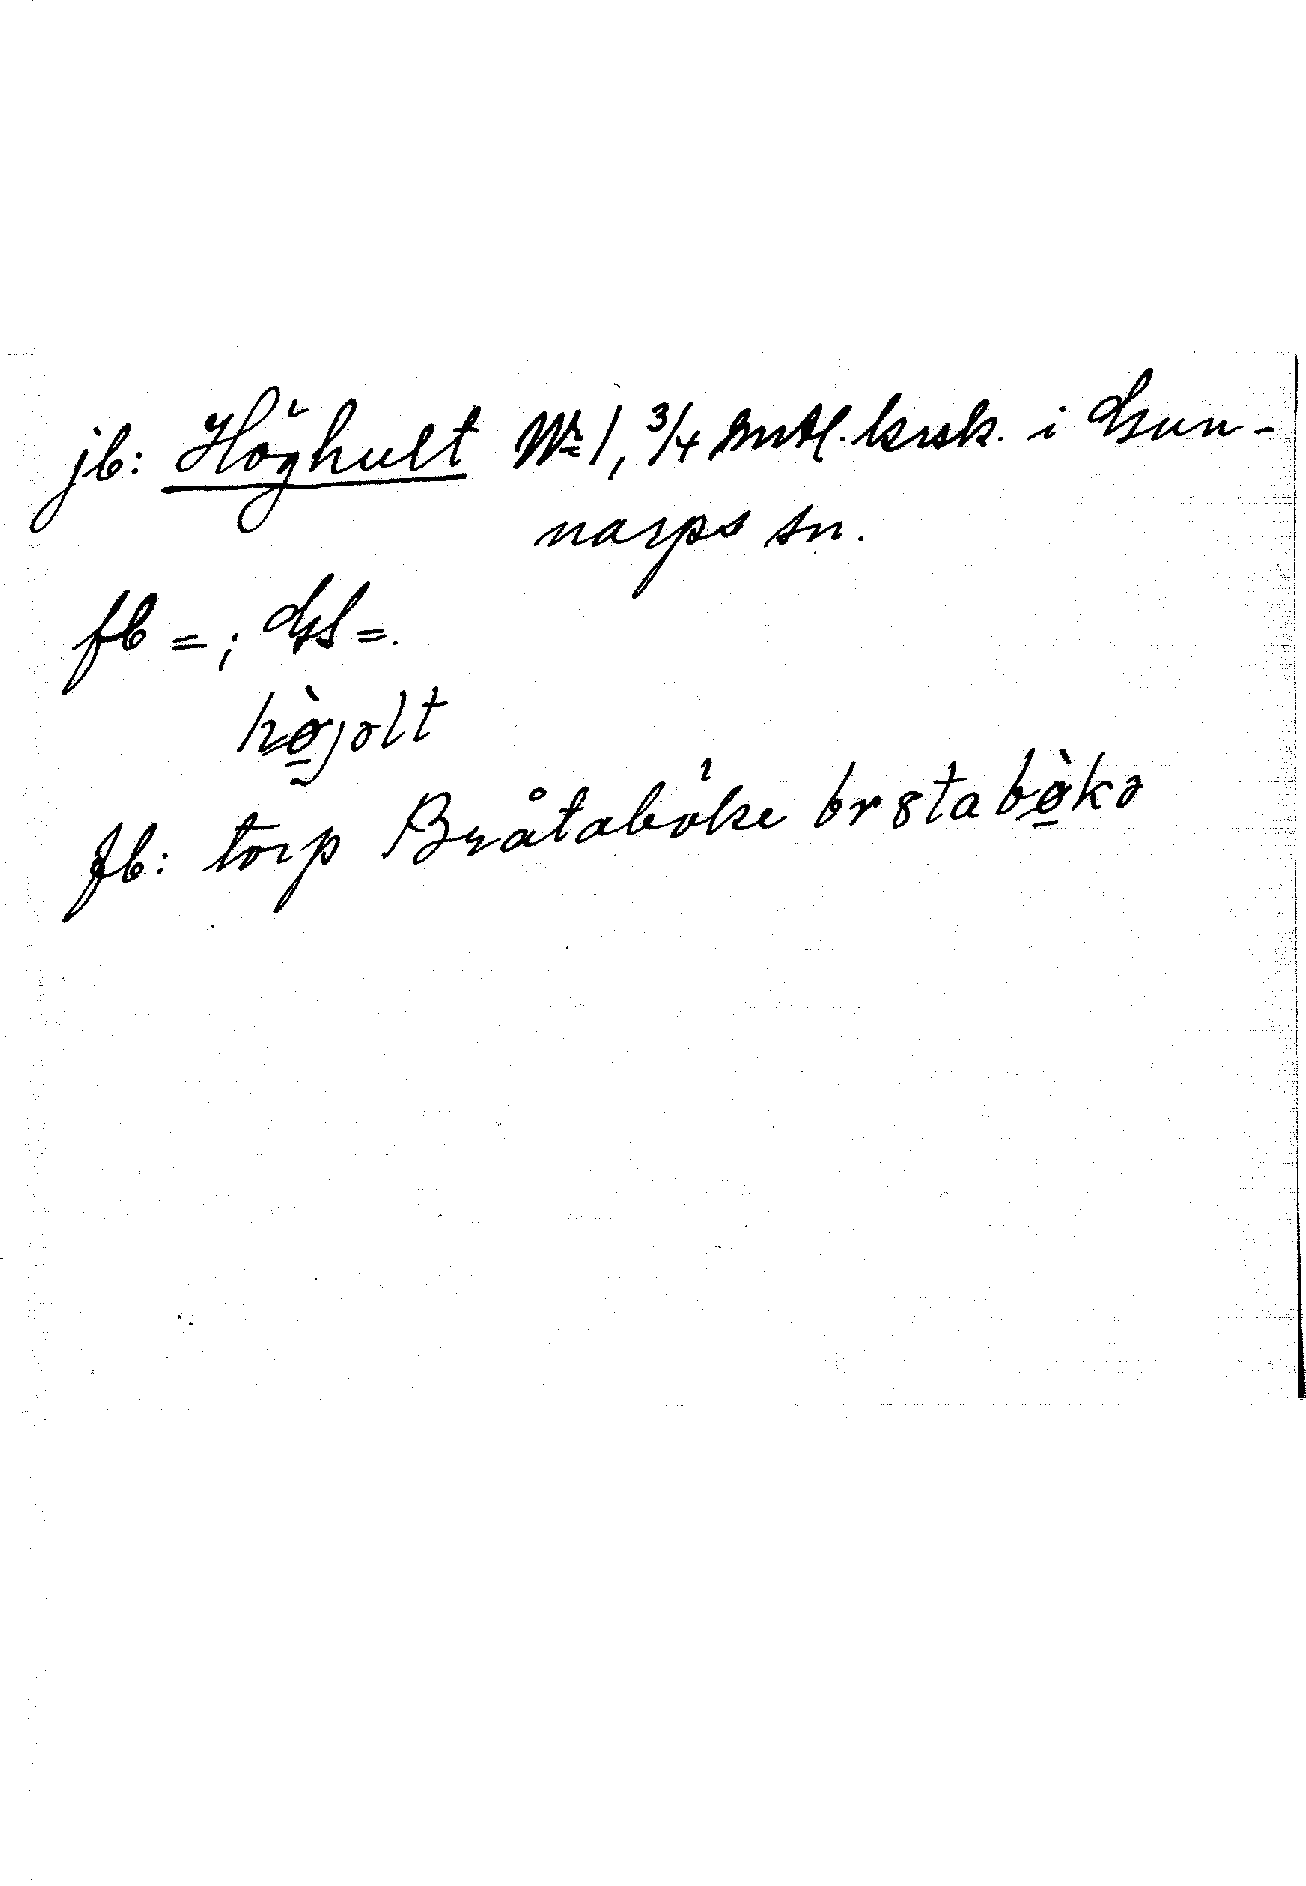 jb: Höghult Nr 1, 3/4 mtl. krsk. i Gun-
narps sn.
fb = ; GS =.
hø̠̀jolt
fb: torp Bråtaböke br8tabø̠̀kə